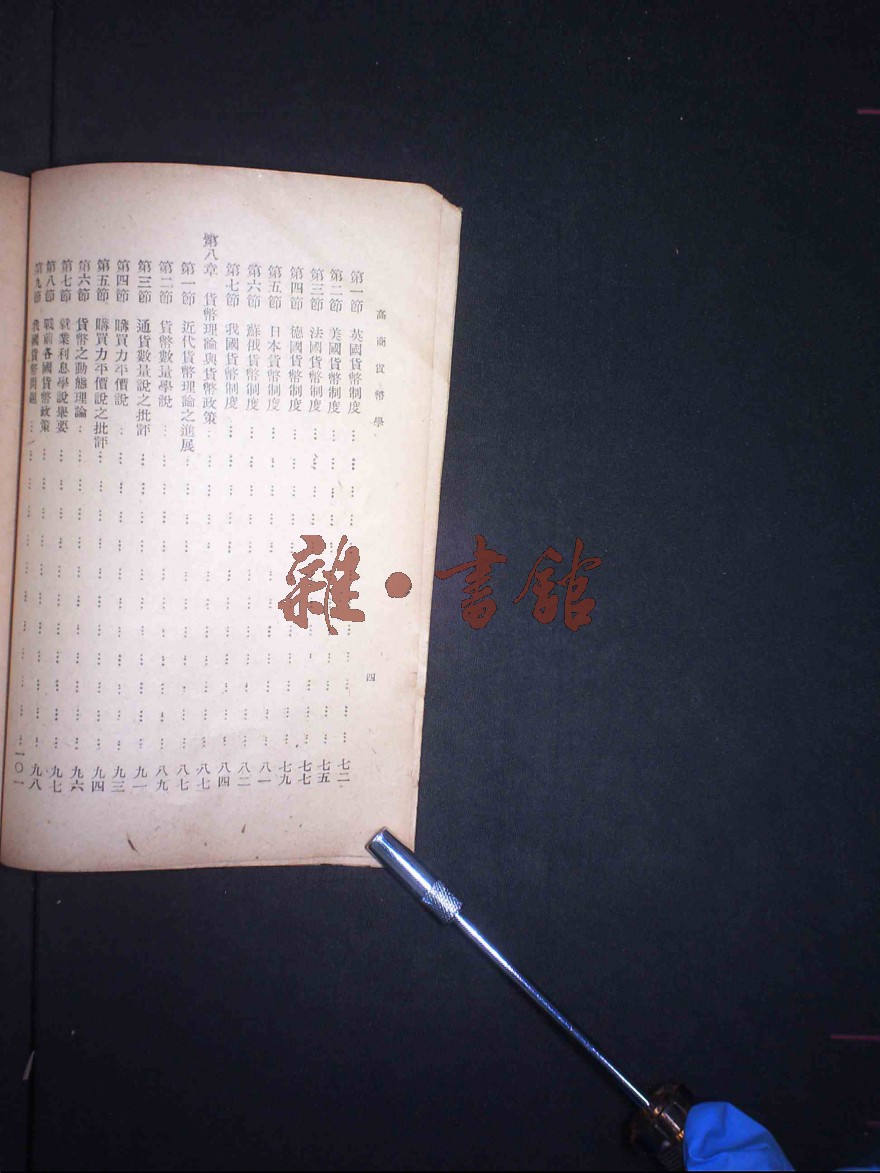 高商貨幣學
四
第一節 英國貨幣制度 七二
第二節 美國貨幣制度 七五
第三節 法國貨幣制度 七七
第四節 德國貨幣制度 七九
第五節 日本貨幣制度 八一
第六節 蘇俄貨幣制度 八二
第七節 我國貨幣制度 八四
第八章 貨幣理論與貨幣政策 八七
第一節 近代貨幣理論之進展 八七
第二節 貨幣數量學說 八九
第三節 通貨數量說之批評 九一
第四節 購買力平價說 九三
第五節 購買力平價說之批評 九四
第六節 貨幣之動態理論 九六
第七節 就業利息學說舉要 九七
第八節 戰前各國貨幣政策 九八
第九節 我國貨幣問題 一〇一
雜·書館